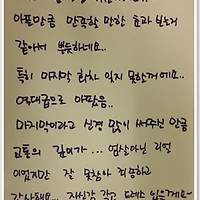 아픈만큼 만족할 만한 효과 보는거
같아서 뿌듯하네요..
특히 마지막 회차 잊지 못할꺼에요..
역대급으로 아팠음..
마지막이라고 신경 많이 써주신 만큼
고통의 깊이가 ... 엄살아닌 리얼
이었지만 잘 못참아 죄송하고
감사해요.. 자신감 갖고 드레스 입을게요~